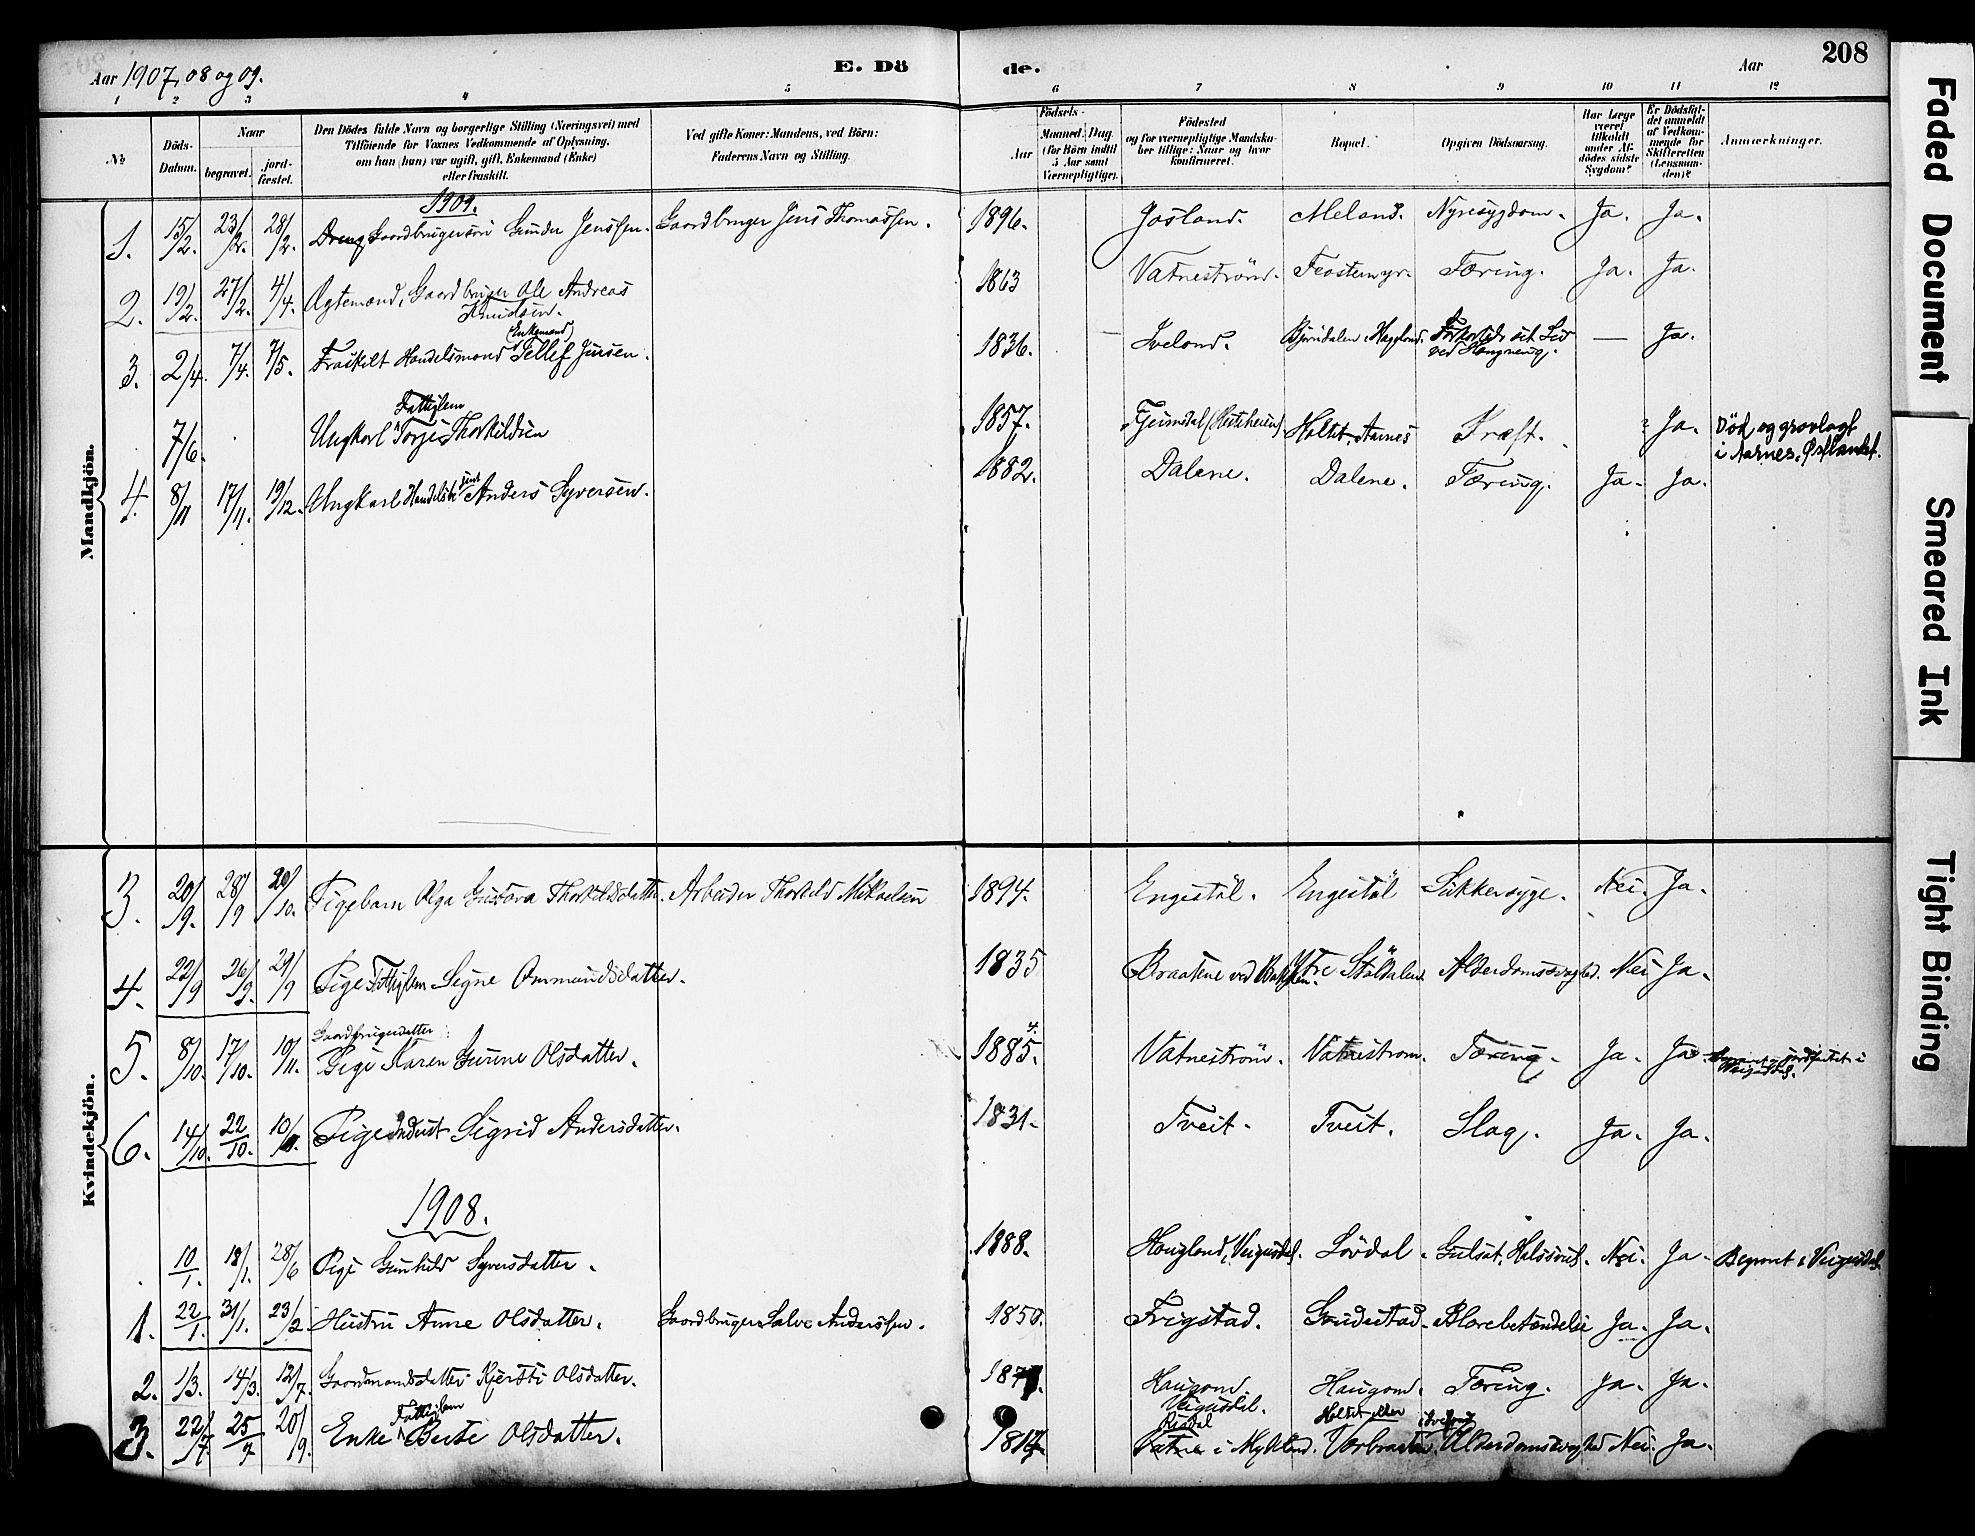 Aar 1907, 08 og 09. E. Dö de. Aar 208
1 2 3 4 5 6 7 8 9 10 11 12
No
Döds-Datum.
Naar
begravet.
jord-fæstet.
Den Dödes fulde Navn og borgerlige Stilling (Næringsvei) med
Tilföiende for Voxnes Vedkommende af Oplysning,
om han (hun) var ugift, gift, Enkemand (Enke)
eller fraskilt.
Ved gifte Koner: Mandens, ved Börn:
Faderens Navn og Stilling.
Födsels-
Aar
Maaned. Dag
(for Börn indtil
5 Aar samt
Værnepligtige).
Födested
og for værnepligtige Mandskaber tillige: Naar og hvor
konfirmeret.
Bopæl.
Opgiven Dödsaarsag.
Har Læge
været
tilkaldt
under Afdödes sidste
Sygdom?
Er Dödsfaldet anmeldt
af Vedkommende for
Skifteretten
(Lensmanden)?
Anmærkninger.
Mandkjön.
1909.
1. 15/2. 23/2. 28/2. Dreng Gaardbrugersön Gunder Jenssen. Gaardbruger Jens Thomassen. 1896. Josland. Meland. Nyresygdom. Ja. Ja.
2. 19/2. 27/2. 4/4. Ægtemand, Gaardbruger Ole Andreas
Knudsen. 1863 Vatneström. Tæring. Ja. Ja.
3. 2/4. 7/4. 7/5. Fraskilt Handelsmand (Enkemand) Tellef Jensen. 1836. Iveland. Björndalen i Hægeland. Forkortede sit Liv
ved Hængning. — Ja.
7/6. Ungkarl Fattiglem Torje Thorkildsen 1857. Holtet, Aarnes Kræft. Ja. Död og gravlagt
i Aarnes, Østlandet.
4. 8/11 17/11. 19/12. Ungkarl Anders Syversen. 1882. Dalene. Dalene. Tæring. Ja. Ja.
Kvindekjön.
3. 20/9. 28/9 20/10. Pigebarn Olga Gustava Thorkildsdatter. Arbeider Thorkild Mikaelsen 1894. Engestöl. Engestöl Sukkersyge. Nei. Ja.
4. 22/9 26/9. 29/9 Pige Fattiglem Signe Ommundsdatter. 1835 Braatene ved Ytre Alderdomssvaghed. Nei Ja.
5. 8/10. 17/10. 10/11. Gaardbrugerdatter
Pige Karen Gurine Olsdatter. 1885. Vatneström. Vatneström. Tæring. Ja. Ja
6. 14/10. 22/10. 10/11. Pige Inderst Sigrid Andersdatter. 1831. Tveit. Tveit. Slag. Ja. Ja.
1908.
10/1. 18/1. 28/6 Pige Gunhild Syversdatter. 1888. Hougland, Veigusdal. Lövdal. Gulsot, Halsonds. Nei. Ja. Begravet i Veigusdal.
1. 22/1. 31/1. 23/2 Hustru Anne Olsdatter. Gaardbruger Salve Anderssen. 1850. Frigstad. Blærebetændelse Ja. Ja.
2. 1/3. 14/3. 12/7. Gaardmandsdatter Kjersti Olsdatter. Haugand. Veigusdal. Haugand. Tæring. Ja. Ja.
3. 22/7. 25/7 20/9. Enke Fattiglem Berte Olsdatter. 1814. Risdal Vatne i Mykland. Alderdomssvaghed Nei. Ja.
Faded Document
Smeared Ink
Tight Binding